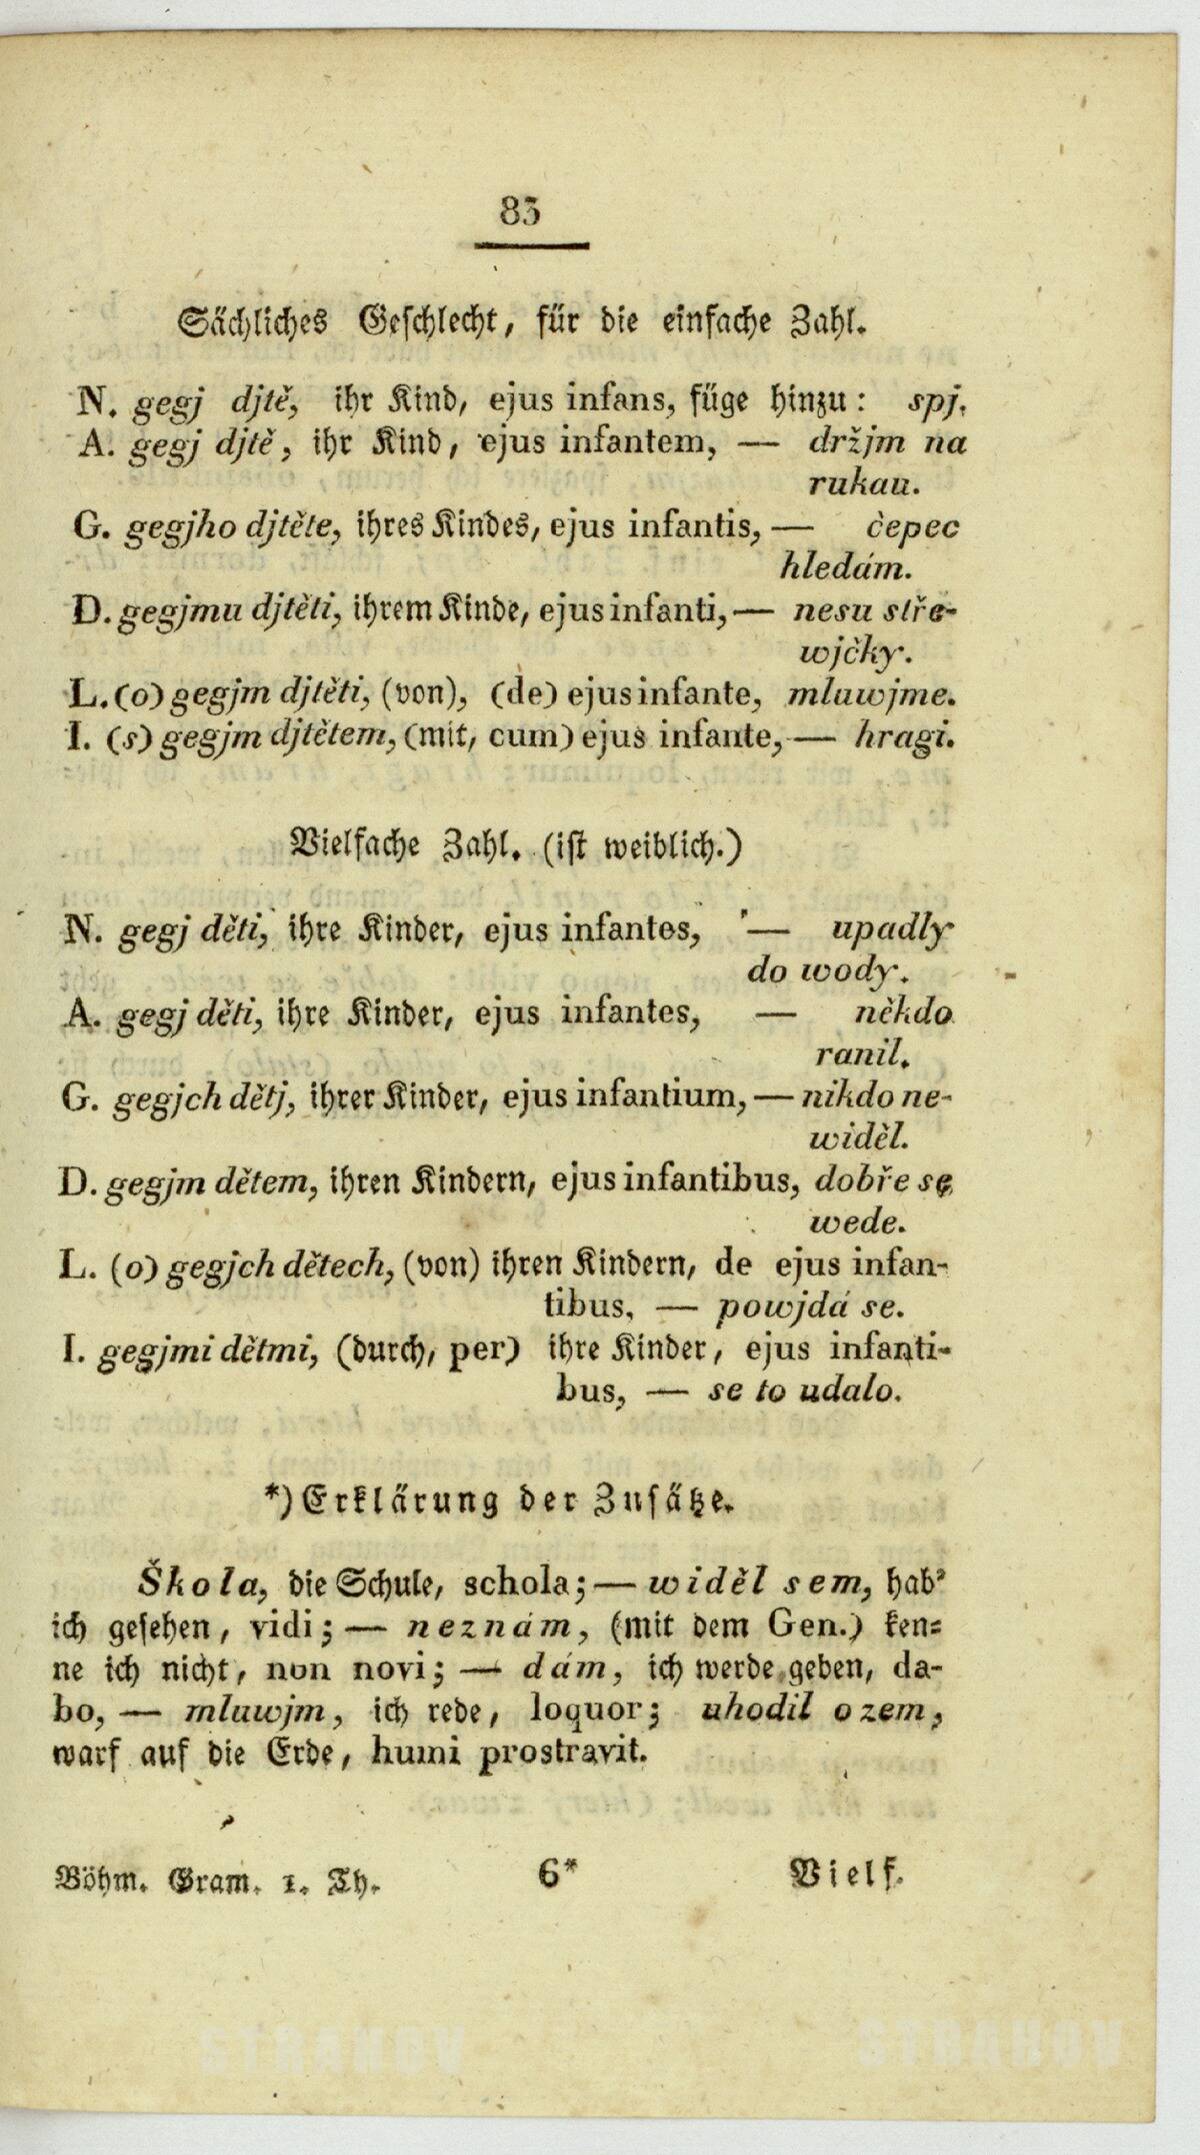 83
Sächliches Geschlecht, für die einfache Zahl.
N. gegj djtě, ihr Kind, ejus infans, füge hinzu: spj.
A. gegj djtě, ihr Kind, ejus infantem, — držjm na
rukau.
G. gegjho djtěte, ihres Kindes, ejus infantis, — čepec
hledám.
D. gegjmu djtěti, ihrem Kinde, ejus infanti, — nesu stře-
wjčky.
L. (o) gegjm djtěti, (von), (de) ejus infante, mluwjme.
I. (s) gegjm djtětem, (mit, cum) ejus infante, — hragi.
Vielfache Zahl. (ist weiblich.)
N. gegj děti, ihre Kinder, ejus infantes, — upadly
do wody.
A. gegj děti, ihre Kinder, ejus infantes, — někdo
ranil.
G. gegjch dětj, ihrer Kinder, ejus infantium, — nikdo ne-
widěl.
D. gegjm dětem, ihren Kindern, ejus infantibus, dobře se
wede.
L. (o) gegjch dětech, (von) ihren Kindern, de ejus infan-
tibus, — powjdá se.
I. gegjmi dětmi, (durch, per) ihre Kinder, ejus infanti-
bus, — se to udalo.
*) Erklärung der Zusätze.
Škola, die Schule, schola; — widěl sem, hab'
ich gesehen, vidi; — neznám, (mit dem Gen.) ken-
ne ich nicht, non novi; — dám, ich werde geben, da-
bo, — mluwjm, ich rede, loquor; uhodil o zem,
warf auf die Erde, humi prostravit.
Böhm. Gram. 1. Th. 6* Vielf.
STRAHOV STRAHOV